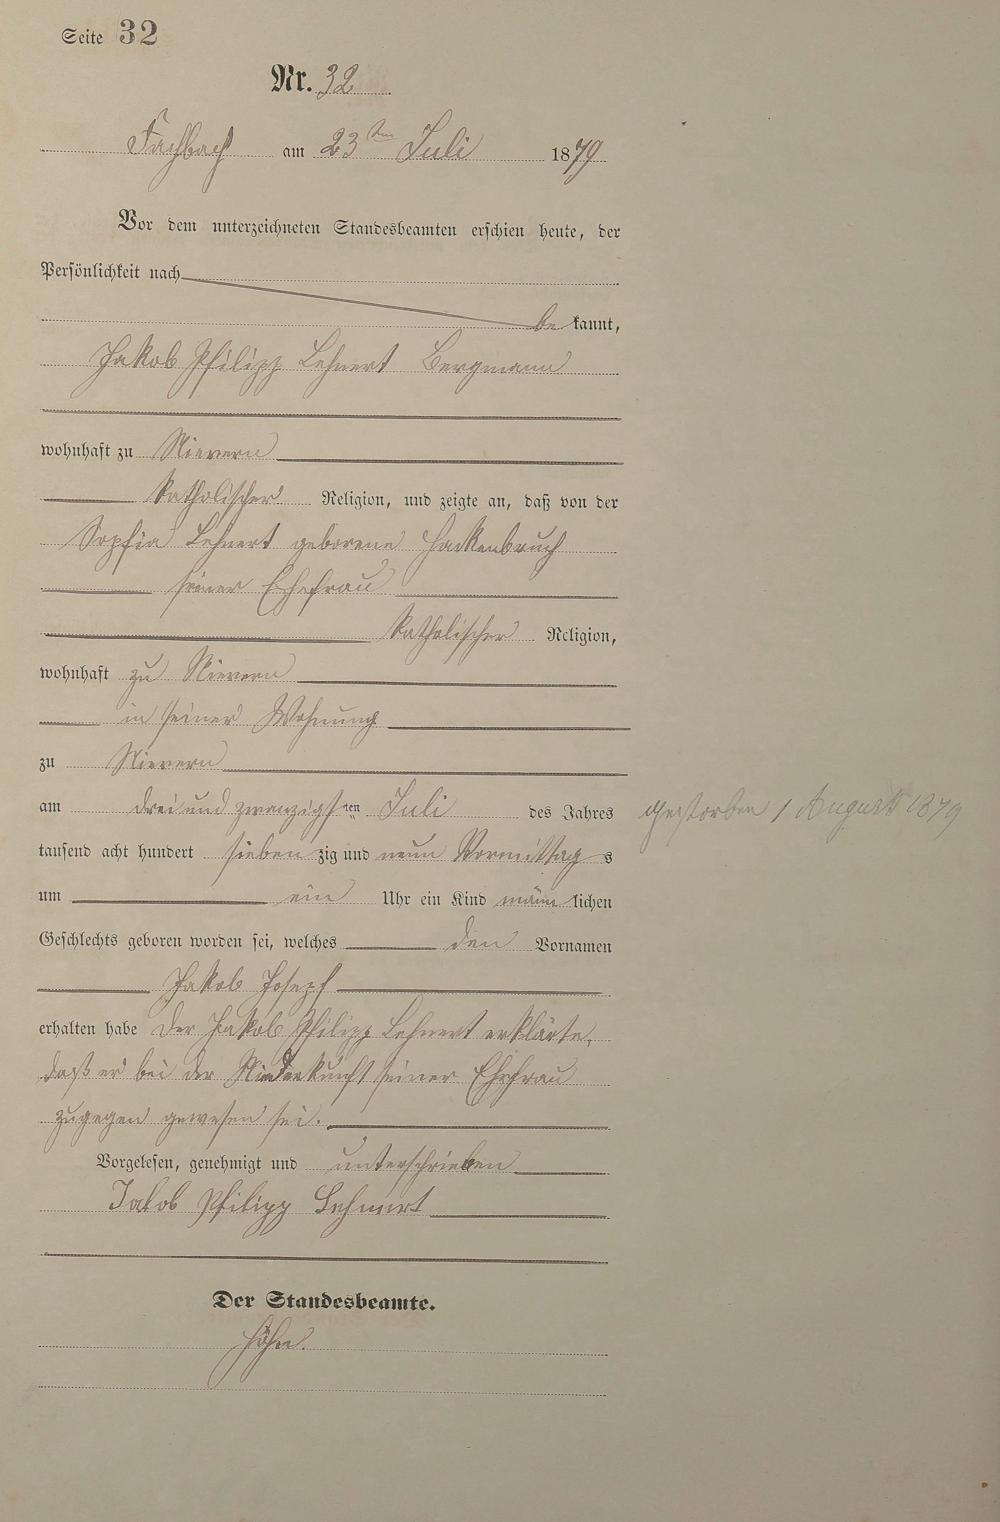 Seite 32
Nr. 32
Fachbach am 23ten Juli 1879
Vor dem unterzeichneten Standesbeamten erschien heute, der
Persönlichkeit nach
be kannt,
Jakob Philipp Lehnert Bergmann
wohnhaft zu Nievern
katholischer Religion, und zeigte an, daß von der
Sophia Lehnert geborene Hackenbruch
seiner Ehefrau
katholischer Religion,
wohnhaft zu Nievern
in seiner Wohnung
zu Nievern
am drei und zwanzigsten Juli des Jahres
tausend acht hundert sieben zig und neun Vormittag s
um ein Uhr ein Kind männ lichen
Geschlechts geboren worden sei, welches den Vornamen
Jakob Joseph
erhalten habe Der Jakob Philipp Lehnert erklärte,
daß er bei der Niederkunft seiner Ehefrau
zugegen gewesen sei.
Vorgelesen, genehmigt und unterschrieben
Jakob Philipp Lehnert
Der Standesbeamte.
Höhn.
Gestorben 1 August 1879